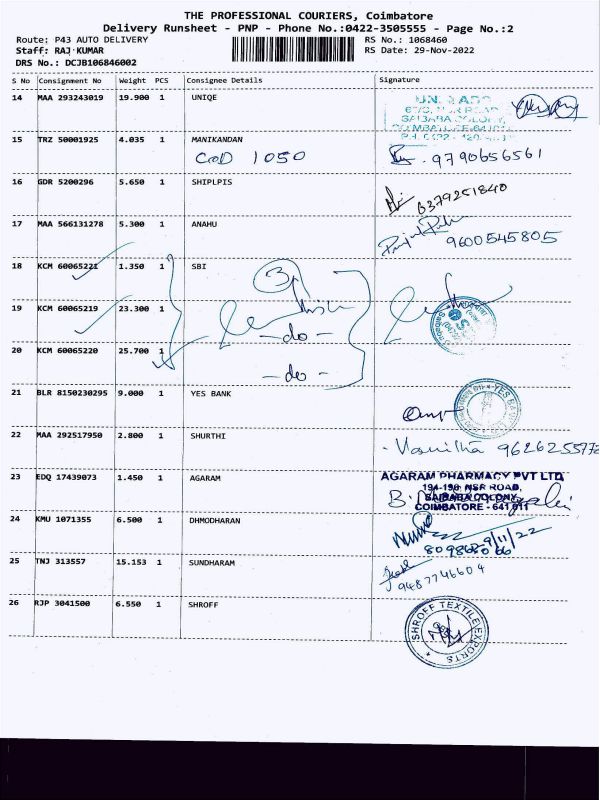 THE PROFESSIONAL COURIERS, Coimbatore
Delivery Runsheet - PNP - Phone No.:0422-3505555 - Page No.:2
Route: P43 AUTO DELIVERY RS No.: 1068460
Staff: RAJ KUMAR RS Date: 29-Nov-2022
DRS No.: DCJB106846002
S No Consignment No Weight PCS Consignee Details Signature
14 MAA 293243019 19.900 1 UNIQE
SAIBABA COLONY,
15 TRZ 50001925 4.035 1 MANIKANDAN
COD 1050 9790656561
16 GDR 5200296 5.650 1 SHIPLPIS
8379251840
17 MAA 566131278 5.300 1 ANAHU
9600545805
18 KCM 60065221 1.350 1 SBI
19 KCM 60065219 23.300 1
- do -
20 KCM 60065220 25.700 1
- do -
21 BLR 8150230295 9.000 1 YES BANK
22 MAA 292517950 2.800 1 SHURTHI
23 EDQ 17439073 1.450 1 AGARAM AGARAM PHARMACY PVT LTD
194-196 NSR ROAD,
SAIBABA COLONY
COIMBATORE - 641 011
24 KMU 1071355 6.500 1 DHMODHARAN
29/11/22
25 TNJ 313557 15.153 1 SUNDHARAM
9487746604
26 RJP 3041500 6.550 1 SHROFF
SHROFF TEXTILE EXPORTS